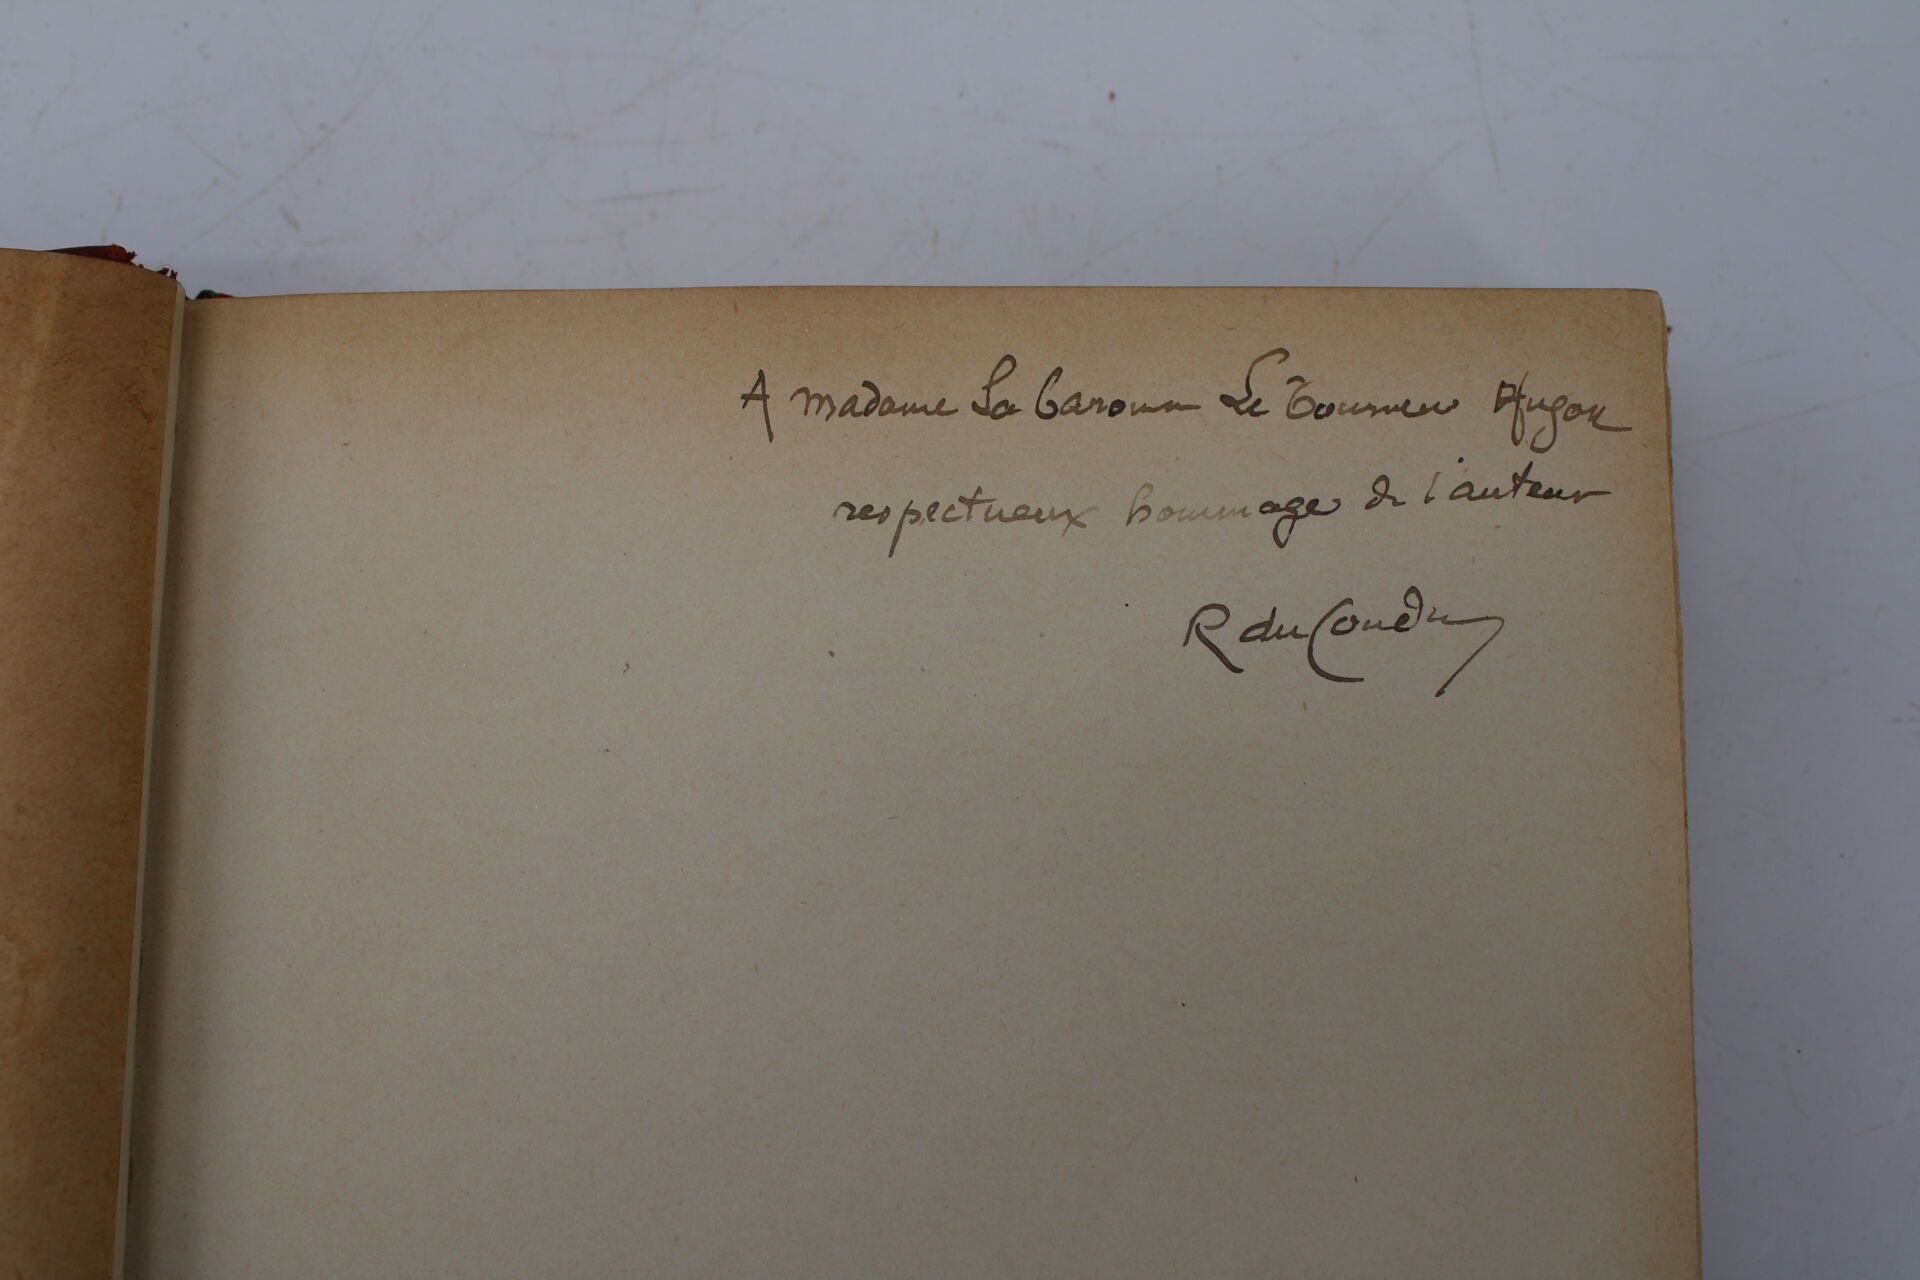 A madame La baronne Le Tourneur Hugon
respectueux hommage de l'auteur
R du Coudr